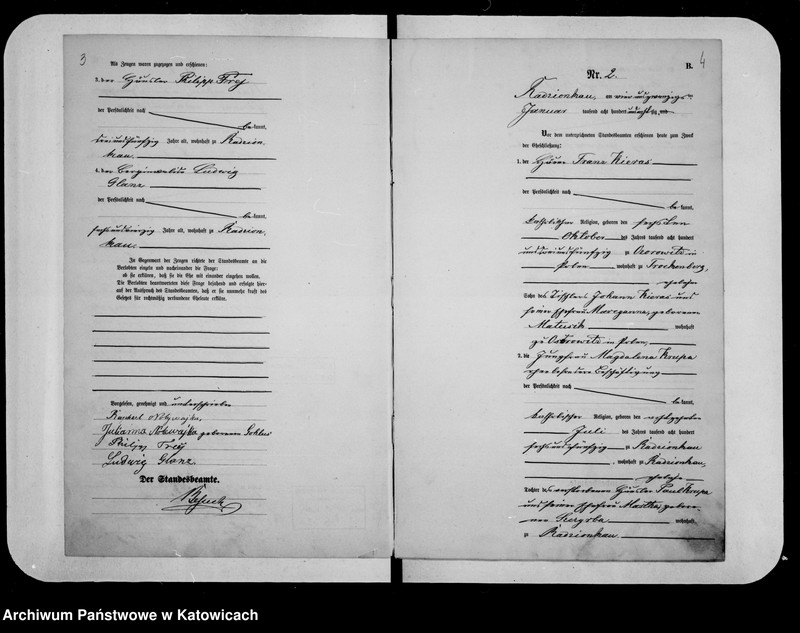 3
Als Zeugen waren zugezogen und erschienen:
3. der Häusler Philipp Frej
der Persönlichkeit nach
be kannt,
dreiundfünfzig Jahre alt, wohnhaft zu Radzion-
kau.
4. der Berginvalide Ludwig
Glanz
der Persönlichkeit nach
be kannt,
sechsundvierzig Jahre alt, wohnhaft zu Radzion-
kau.
In Gegenwart der Zeugen richtete der Standesbeamte an die
Verlobten einzeln und nacheinander die Frage:
ob sie erklären, daß sie die Ehe mit einander eingehen wollen.
Die Verlobten beantworteten diese Frage bejahend und erfolgte hier-
auf der Ausspruch des Standesbeamten, daß er sie nunmehr kraft des
Gesetzes für rechtmäßig verbundene Eheleute erkläre.
Vorgelesen, genehmigt und unterschrieben
Julianna geborene
Philipp Frej
Ludwig Glanz
Der Standesbeamte.
B. 4
Nr. 2.
Radzionkau, am vier und zwanzigsten
Januar tausend acht hundert und
Vor dem unterzeichneten Standesbeamten erschienen heute zum Zweck
der Eheschließung:
1. der Franz Kieras
der Persönlichkeit nach
be kannt,
katholischer Religion, geboren den sechsten
Oktober des Jahres tausend acht hundert
zu in
Polen, wohnhaft zu Trockenberg,
Sohn des Tischlers Johann Kieras und
seiner Ehefrau Maryanna, geborenen
wohnhaft
zu in Polen,
2. die Jungfrau Magdalena Krupa
ohne besondere Beschäftigung
der Persönlichkeit nach
be kannt,
katholischer Religion, geboren den achtzehnten
Juli des Jahres tausend acht hundert
sechsundfünfzig zu Radzionkau
, wohnhaft zu Radzionkau,
Tochter des verstorbenen Häusler Paul Krupa
und seiner Ehefrau Martha, gebore-
nen wohnhaft
zu Radzionkau.
Archiwum Państwowe w Katowicach